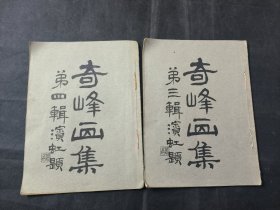 奇峰画集
第四輯濱虹題
奇峰画集
第三輯濱虹題